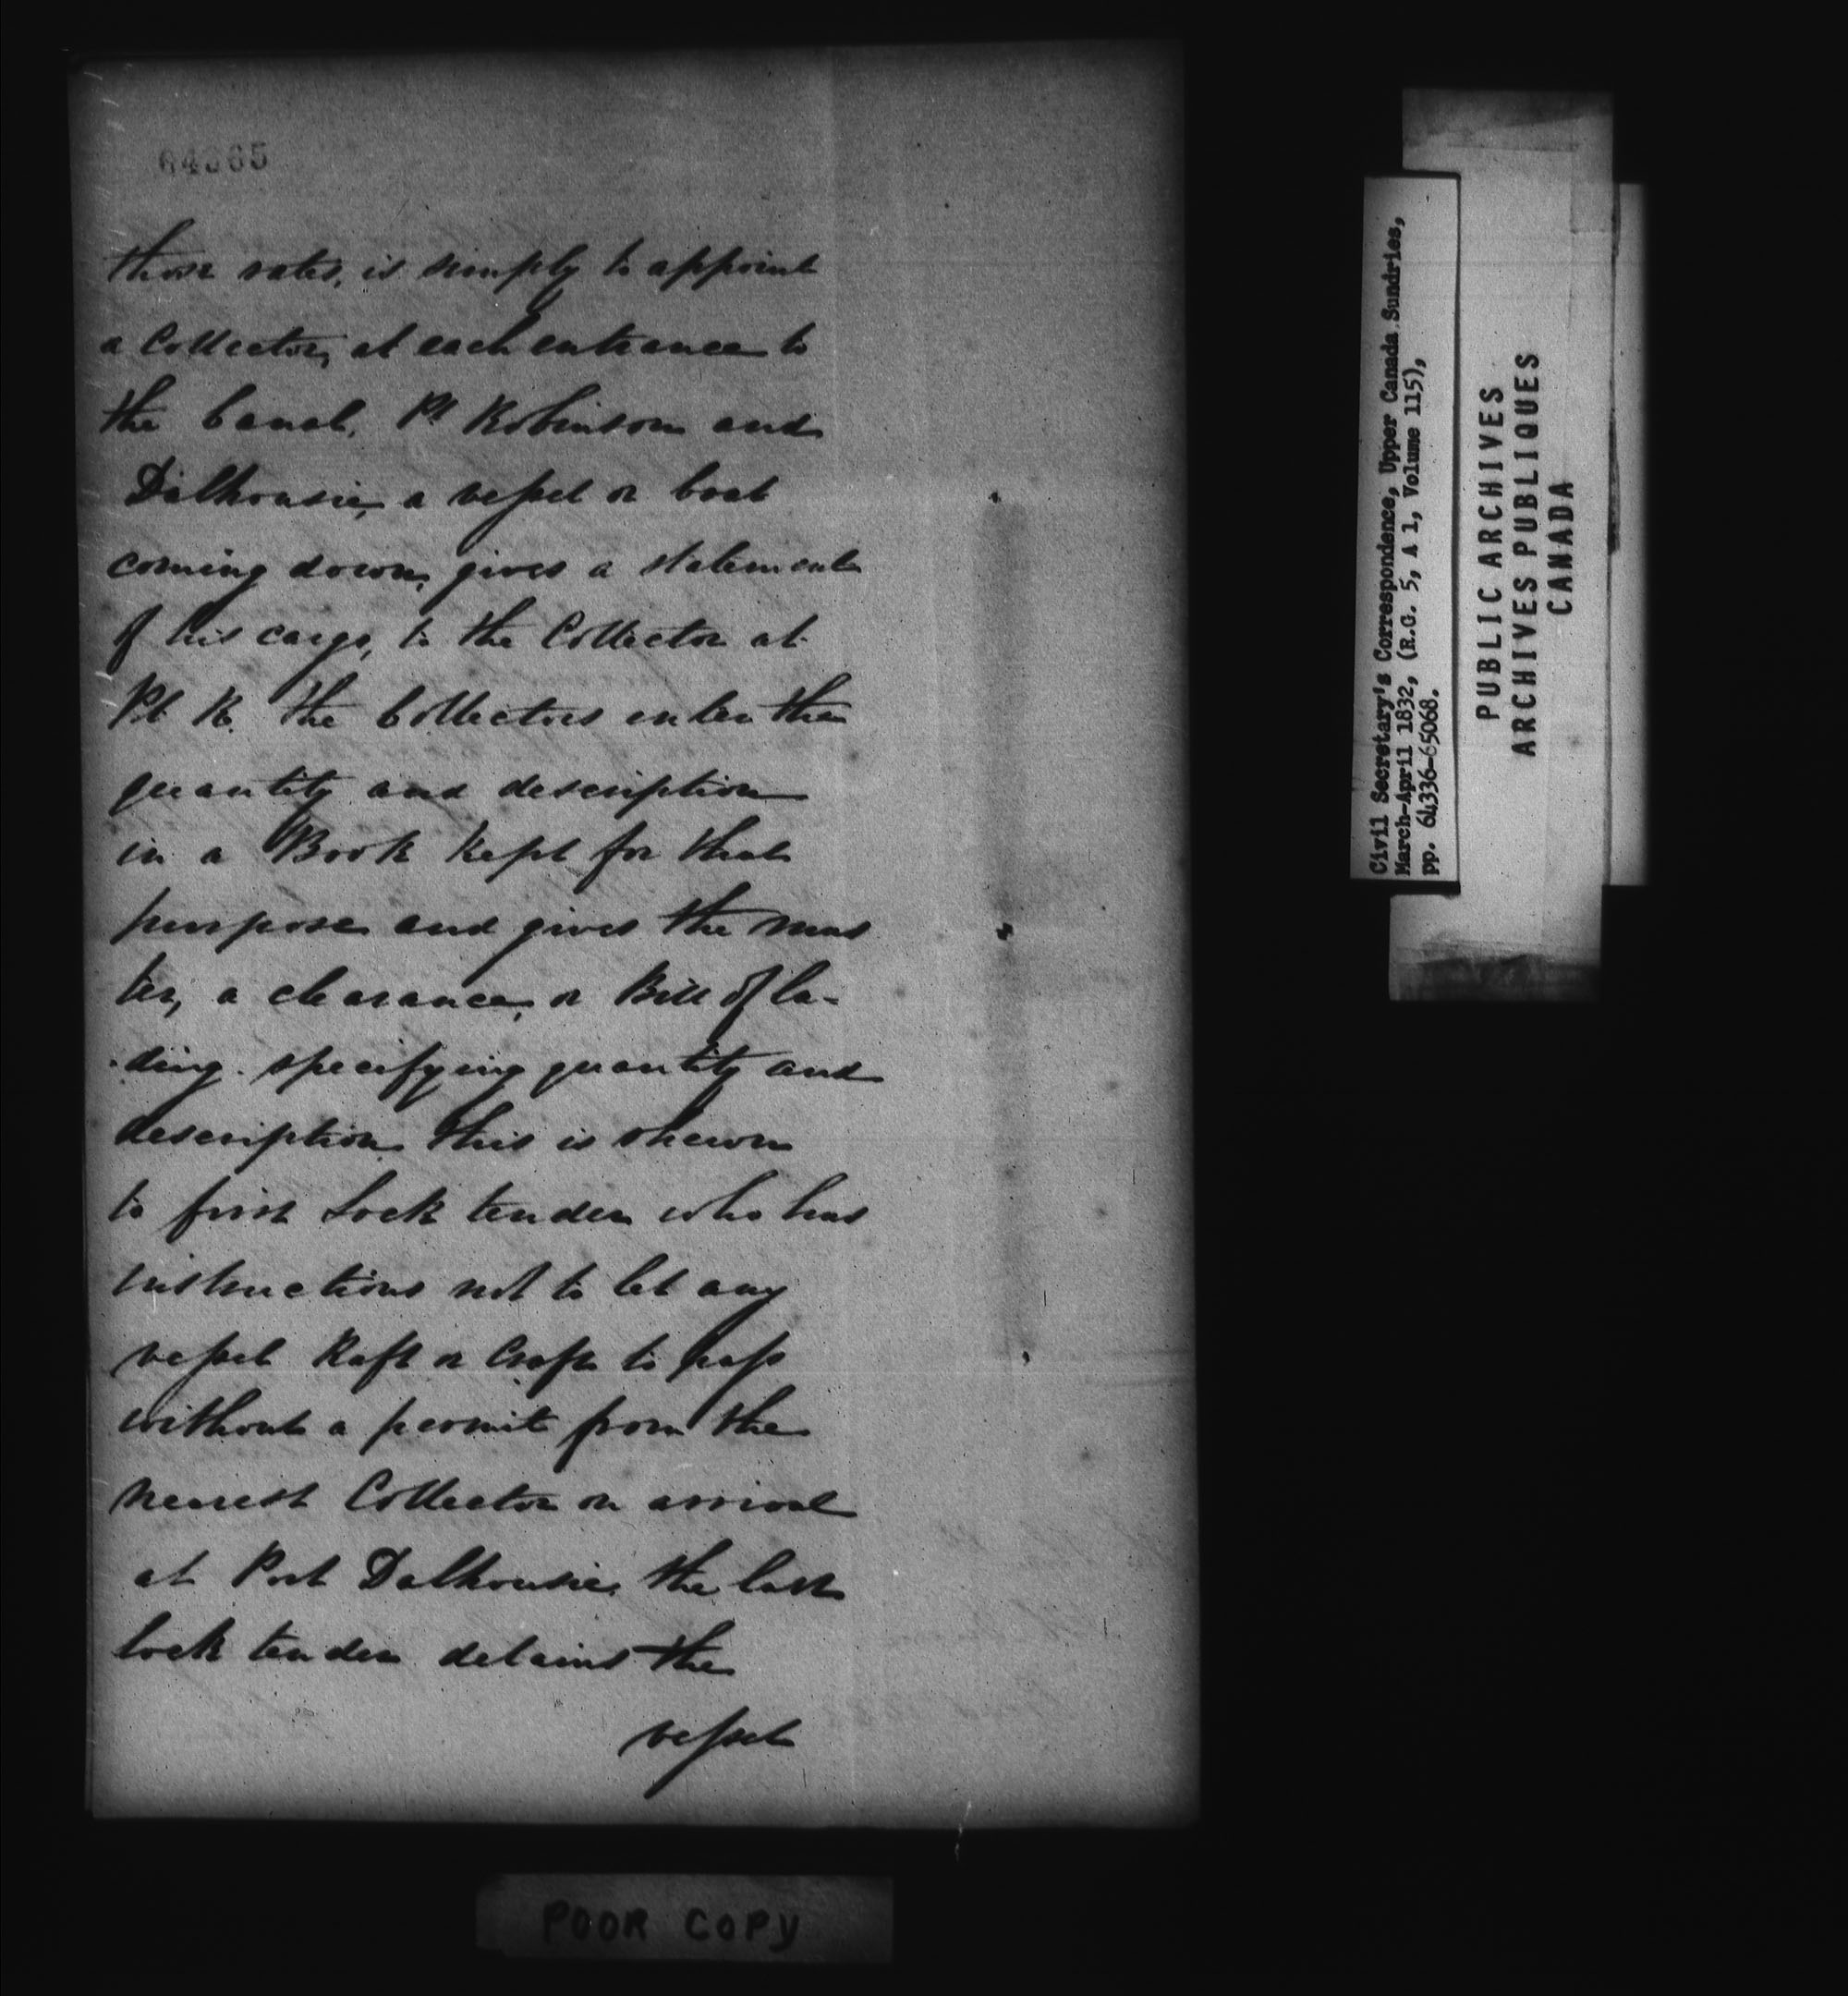 64365
those rates, is simply to appoint
a Collector, at each entrance to
the Canal. Pt Robinson and
Dalhousie, a vessel or boat
coming down, gives a statement
of his cargo, to the Collector at
Pt R. the Collectors enter the
quantity and description
in a Book kept for that
purpose and gives the mas
ter, a clearance, or Bill of la-
-ding. specifying quantity and
description this is shewn
to first Lock tender who has
instructions not to let any
vessel Raft or Craft to pass
without a permit from the
nearest Collector on arrival
at Port Dalhousie, the last
lock tender detains the
vessel
Civil Secretary's Correspondence, Upper Canada Sundries,
March-April 1832, (R.G. 5, A 1, Volume 115),
pp. 64336-65068.
PUBLIC ARCHIVES
ARCHIVES PUBLIQUES
CANADA
POOR COPY